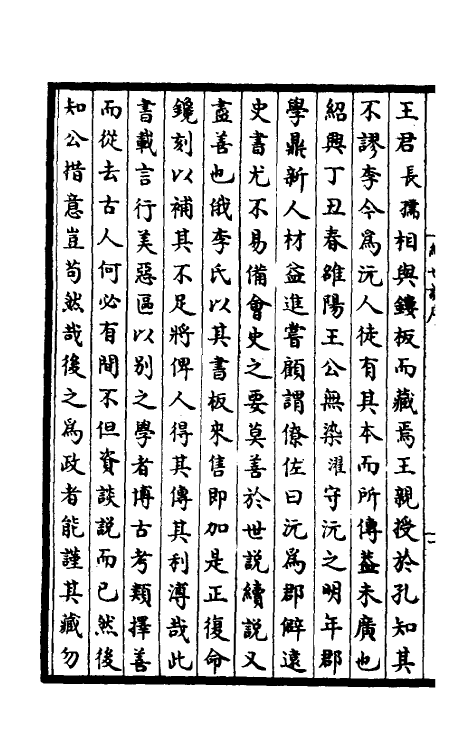 王君長孺相與鏤板而藏焉王親授於孔知其
不謬李今爲沅人徒有其本而所傳葢未廣也
紹興丁丑春雒陽王公無染濯守沅之明年郡
學鼎新人材益進嘗顧謂僚佐曰沅爲郡僻遠
史書尤不易備會史之要莫善於世說續說又
盡善也俄李氏以其書板來售即加是正復命
鑱刻以補其不足將俾人得其傳其利溥哉此
書載言行美惡區以别之學者博古考類擇善
而從去古人何必有間不但資談說而已然後
知公措意豈苟然哉後之爲政者能謹其藏勿